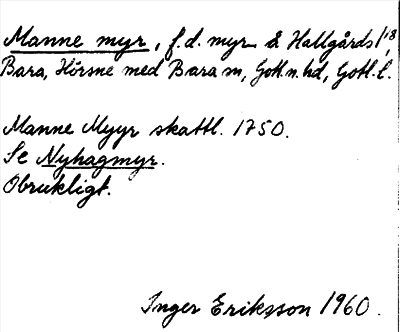 Manne myr, f.d. myr å Hallgårds 1/18,
Bara, Hörsne med Bara sn, Gotl. n. hd, Gotl. l.
Manne Myyr skattl. 1750.
Se Nyhagmyr.
Obrukligt.
Inger Eriksson 1960.